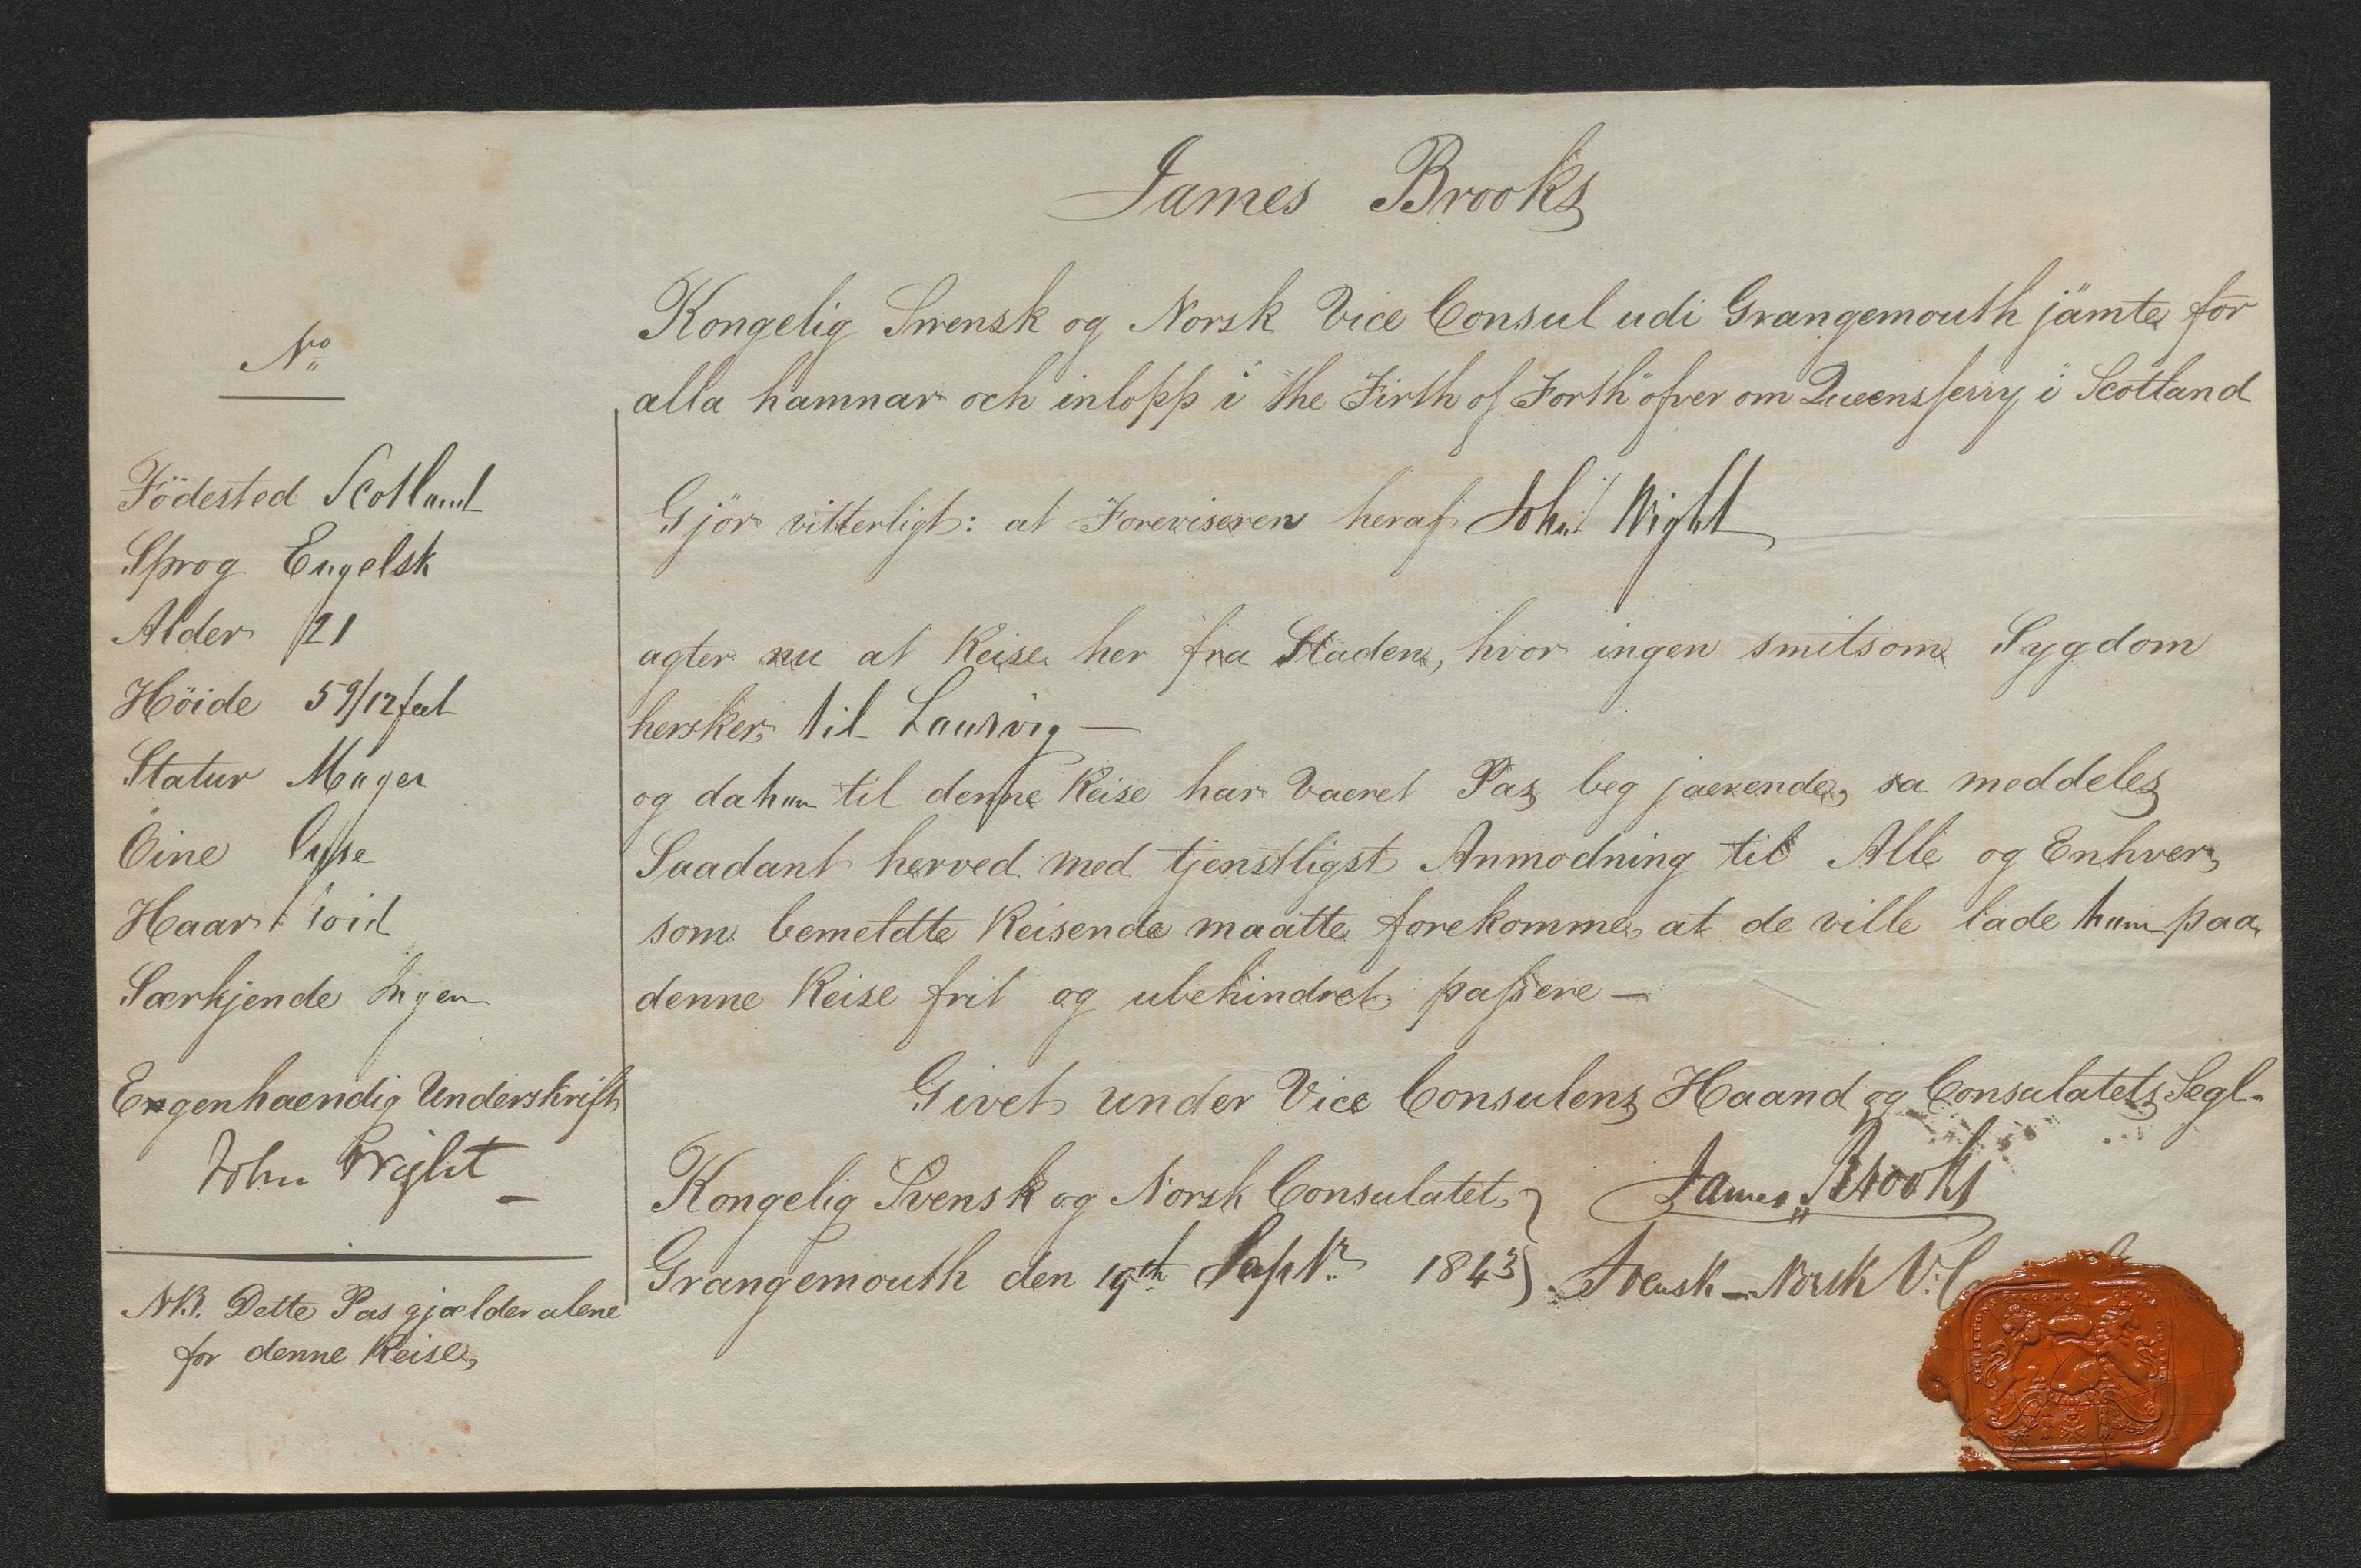 James Brooks
Kongelig Svensk og Norsk Vice Consul udi Grangemouth jämte för
alla hamnar och inlopp i "the Firth of Forth" öfver om Queensferry i Scotland
No
Födested Scotland
Sprog Engelsk
Alder 21
Höide 5 9/12 feet
Statur Mager
Öine Lyse
Haar
Særkjende Ingen
Engenhaendig Underskrift
John Wright
NB. Dette Pas gjælder alene
for denne Reise
Gjör vitterligt: at Foreviseren heraf John Wright
agter nu at Reise her fra Staden, hvor ingen smitsom Sygdom
hersker til Laurvig —
og da han til denne Reise har Vaeret Pas beg jaerende, sa meddeles
Saadant herved med tjenstligst Anmodning til Alle og Enhver,
som bemeldte Reisende maatte forekomme, at de ville lade ham paa
denne Reise frit og ubehindret passere —
Givet under Vice Consulens Haand og Consulatets Segl.
Kongelig Svensk og Norsk Consulatet,
Grangemouth den 19th Septr 1843
James Brooks
Svensk - Norsk V. C